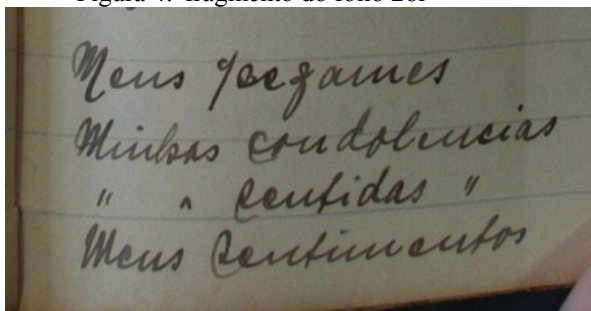 Figura 4: fragmento do fólio
Meus pezames
Minhas condolencias
" " sentidas "
Meus sentimentos